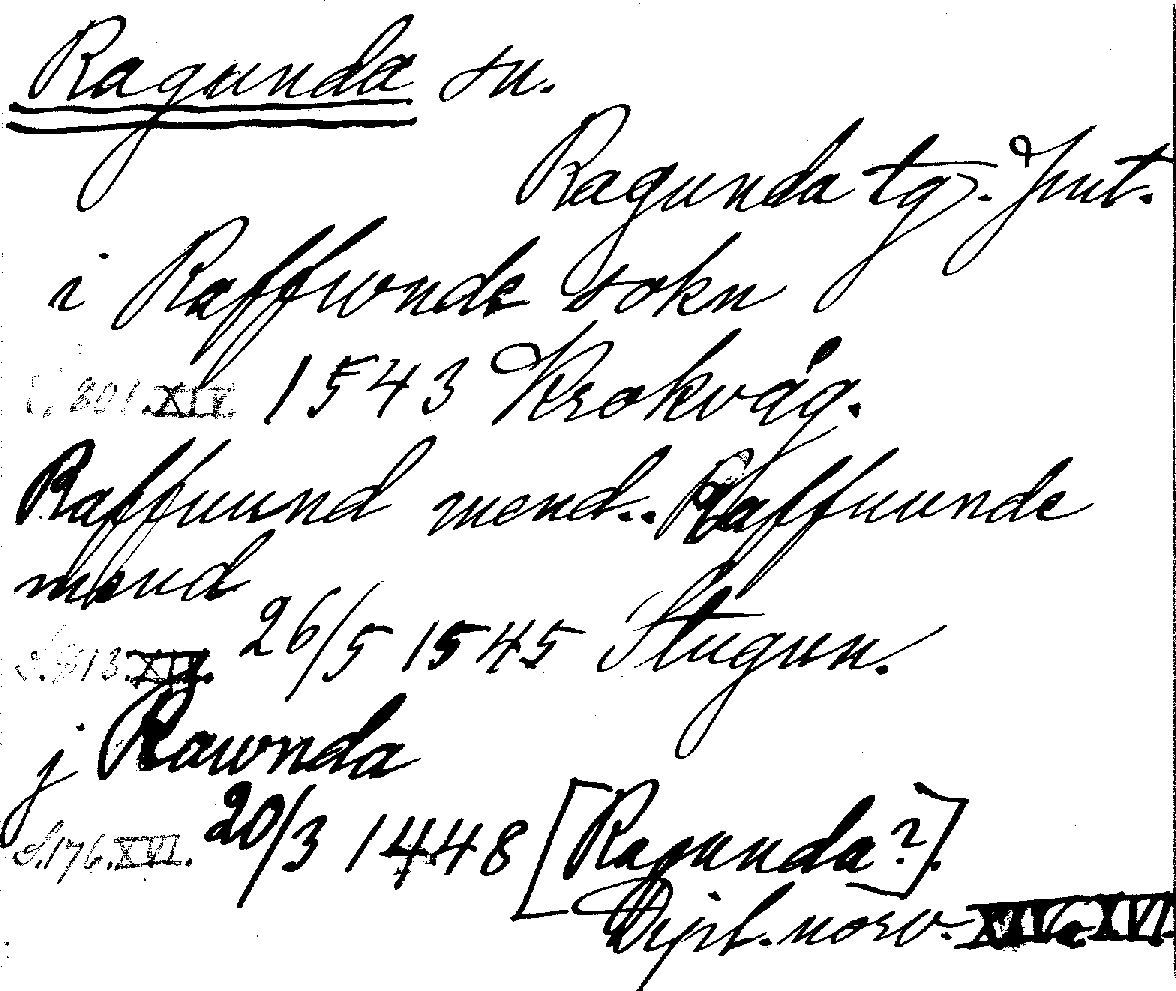 Ragunda sn.
Ragunda tg. Jmt.
i Raffwnde sokn
S. 801. XIV. 1543 Krokvåg.
Raffuund mend.. Raffuunde
mend
S. 813. XIV. 26/5 1545 Stugun.
j Rawnda
S. 176. XVI. 20/3 1448 [Ragunda?].
Dipl. norv. XIV o XVI.